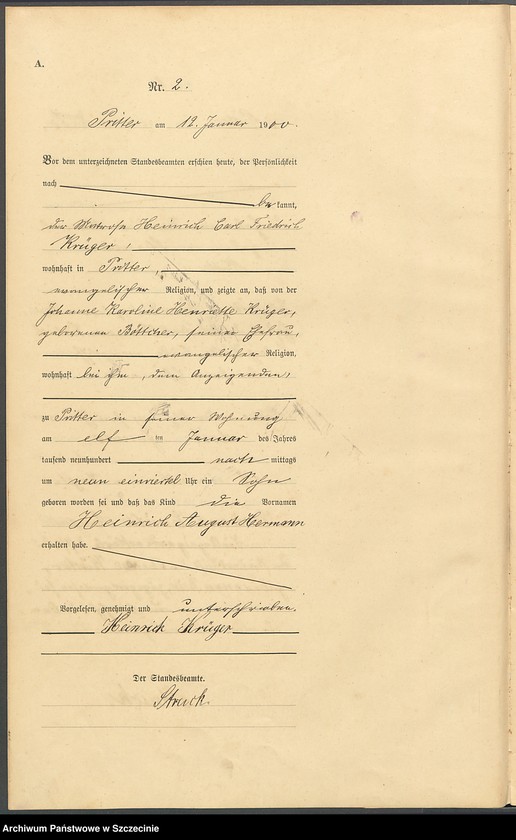 A.
Nr. 2.
Pritter am 12. Januar 1900.
Vor dem unterzeichneten Standesbeamten erschien heute, der Persönlichkeit
nach
bekannt,
der Matrose Heinrich Carl Friedrich
Krüger,
wohnhaft in Pritter,
evangelischer Religion, und zeigte an, daß von der
Johanne Karoline Henriette Krüger,
geborenen Böttcher, seiner Ehefrau,
evangelischer Religion,
wohnhaft bei ihm, dem Anzeigenden,
zu Pritter in seiner Wohnung
am elf ten Januar des Jahres
tausend neunhundert nach mittags
um neun einviertel Uhr ein Sohn
geboren worden sei und daß das Kind die Vornamen
Heinrich August Hermann
erhalten habe.
Vorgelesen, genehmigt und unterschrieben.
Heinrich Krüger
Der Standesbeamte.
Struck.
Archiwum Państwowe w Szczecinie